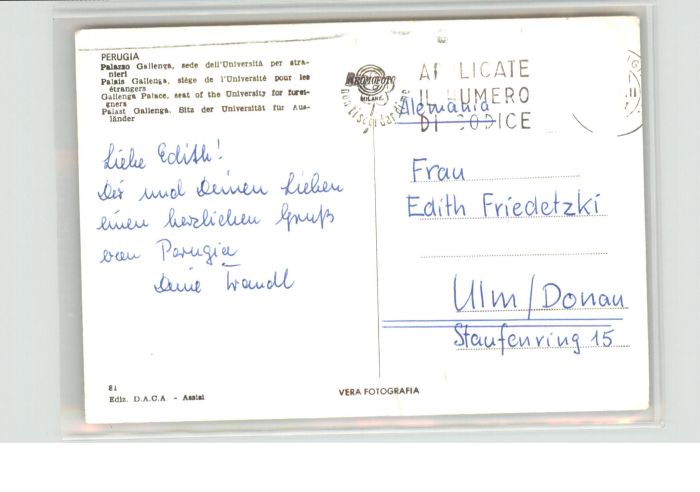 PERUGIA
Palazzo Gallenga, sede dell'Università per stra-
nieri
Palais Gallenga, siège de l'Université pour les
étrangers
Gallenga Palace, seat of the University for forei-
gners
Palast Gallenga. Sitz der Universität für Aus-
länder
MILANO
APPLICATE
IL NUMERO
DI CODICE
Alemania
Liebe Edith!
Dir und Deinen Lieben
einen herzlichen Gruß
von Perugia
Deine Traudl
Frau
Edith Friedetzki
Ulm/Donau
Staufenring 15
81
Ediz. D.A.C.A. - Assisi
VERA FOTOGRAFIA